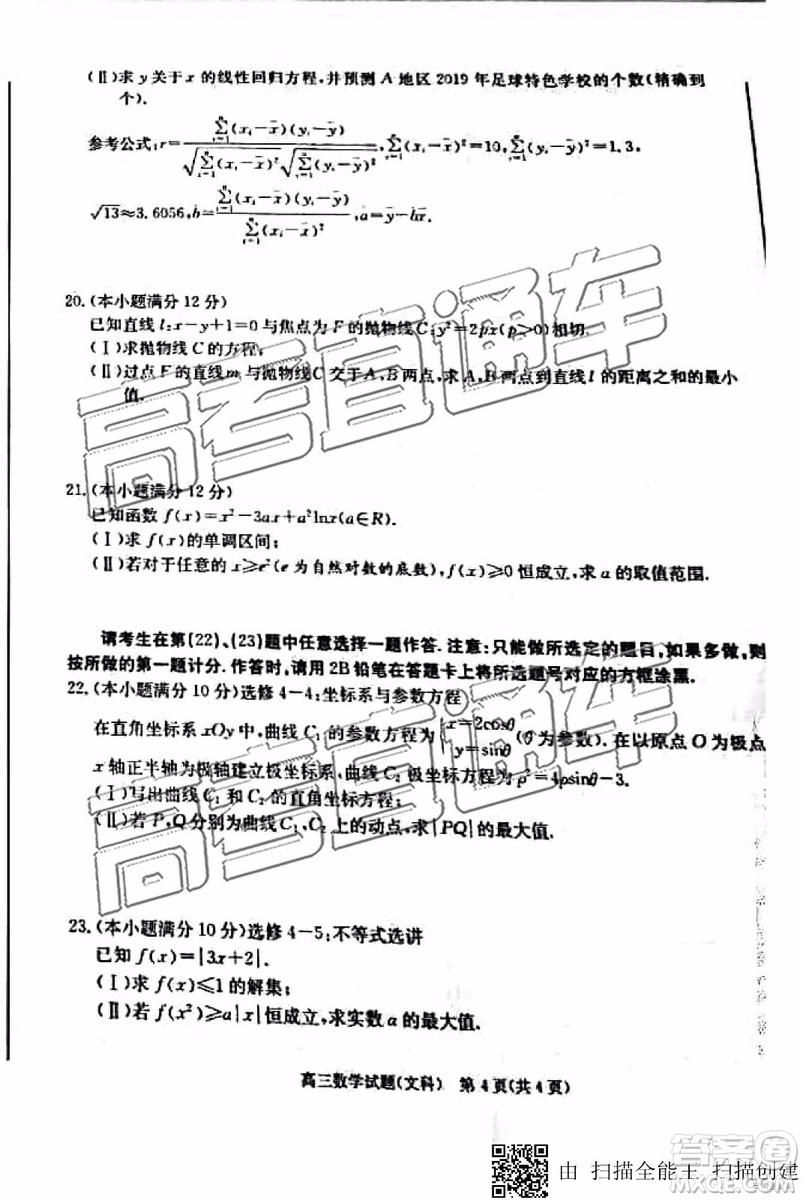 (Ⅱ)求 y 关于 x 的线性回归方程,并预测 A 地区 2019 年足球特色学校的个数(精确到
个).
参考公式:r=\frac{\sum_{i=1}^{n}(x_i-\bar{x})(y_i-\bar{y})}{\sqrt{\sum_{i=1}^{n}(x_i-\bar{x})^2}\sqrt{\sum_{i=1}^{n}(y_i-\bar{y})^2}},\sum_{i=1}^{n}(x_i-\bar{x})^2=10,\sum_{i=1}^{n}(y_i-\bar{y})^2=1.3,
\sqrt{13}≈3.6056,\hat{b}=\frac{\sum_{i=1}^{n}(x_i-\bar{x})(y_i-\bar{y})}{\sum_{i=1}^{n}(x_i-\bar{x})^2},\hat{a}=\bar{y}-\hat{b}\bar{x}.
20.(本小题满分 12 分)
已知直线 l:x-y+1=0 与焦点为 F 的抛物线 C:y²=2px(p>0)相切.
(Ⅰ)求抛物线 C 的方程;
(Ⅱ)过点 F 的直线 m 与抛物线 C 交于 A,B 两点,求 A,B 两点到直线 l 的距离之和的最小
值.
21.(本小题满分 12 分)
已知函数 f(x)=x²-3ax+a²lnx(a∈R).
(Ⅰ)求 f(x)的单调区间;
(Ⅱ)若对于任意的 x≥e²(e 为自然对数的底数),f(x)≥0 恒成立,求 a 的取值范围.
请考生在第(22)、(23)题中任意选择一题作答.注意:只能做所选定的题目,如果多做,则
按所做的第一题计分.作答时,请用 2B 铅笔在答题卡上将所选题号对应的方框涂黑.
22.(本小题满分 10 分)选修 4-4:坐标系与参数方程
在直角坐标系 xOy 中,曲线 C₁ 的参数方程为{x=2cosθ y=sinθ(θ 为参数).在以原点 O 为极点
x 轴正半轴为极轴建立极坐标系,曲线 C₂ 极坐标方程为 ρ²=4ρsinθ-3.
(Ⅰ)写出曲线 C₁ 和 C₂ 的直角坐标方程;
(Ⅱ)若 P,Q 分别为曲线 C₁,C₂ 上的动点,求|PQ|的最大值.
23.(本小题满分 10 分)选修 4-5:不等式选讲
已知 f(x)=|3x+2|.
(Ⅰ)求 f(x)≤1 的解集;
(Ⅱ)若 f(x²)≥a|x|恒成立,求实数 a 的最大值.
高三数学试题(文科) 第 4 页(共 4 页)
高考直通车
高考直通车
答案圈
由 扫描全能王 扫描创建